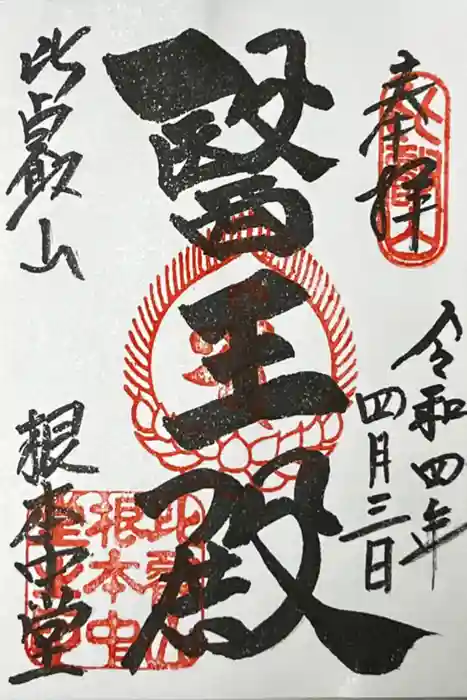 奉拝
令和四年
四月三日
醫王殿
比叡山
根本中堂
比叡山
根本中
堂